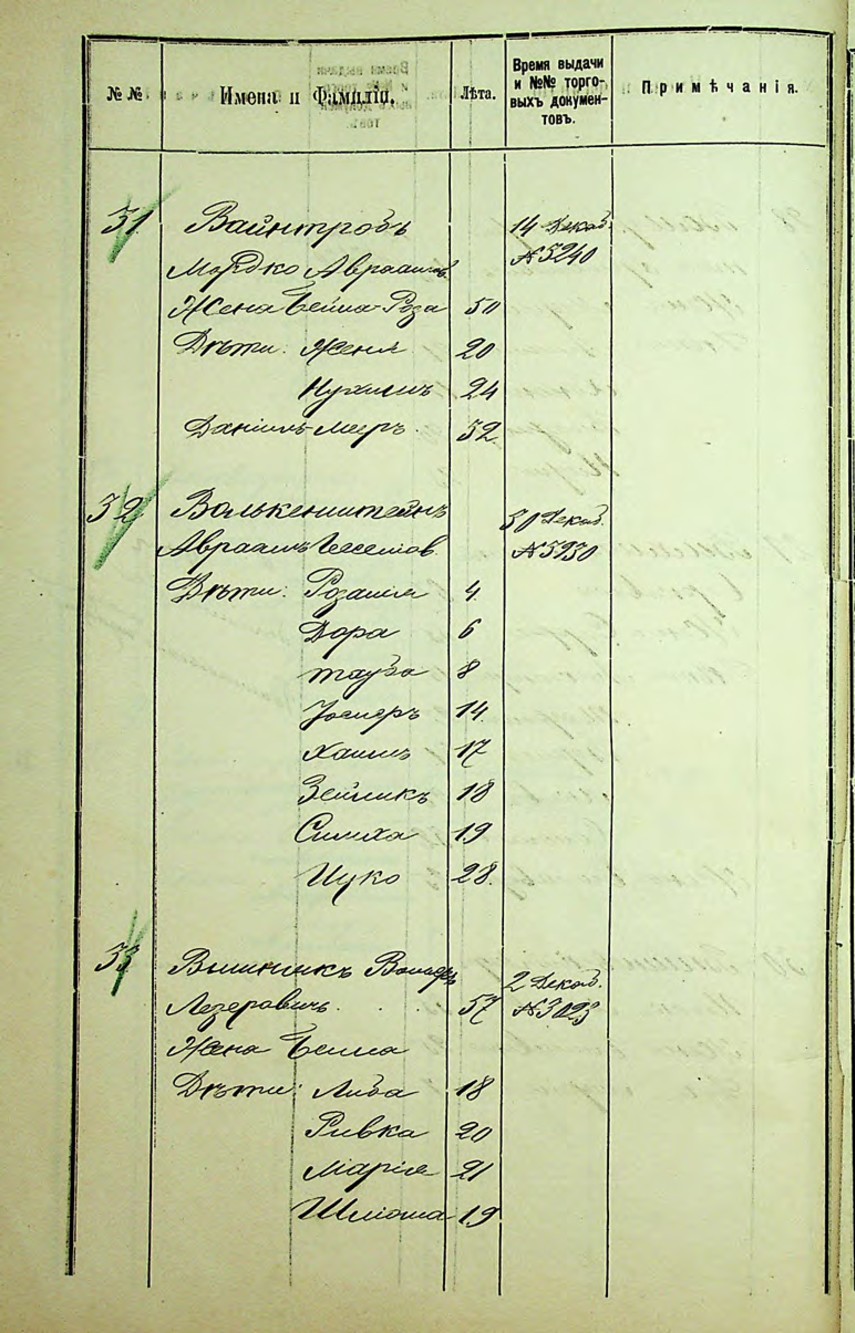 № №
Имена и Фамиліи.
Лѣта.
Время выдачи
и №№ торго-
выхъ докумен-
товъ.
Примѣчанія.
31 Вайнтробъ 14 Декаб.
Мордко Авраамов. №3240
Жена Бейла-Роза 50
Дѣти: Женя 20
Нухимъ 24
Даніилъ-Мееръ 32
32 Волькенштейнъ 30 Декаб.
Авраамъ №3930
Дѣти: Розалія 4
Дора 6
Тауба 8
Іосифъ 14
Хаимъ 17
Зейликъ 18
Симха 19
Ицко 28
33 Вишникъ 2 Декаб.
Лезеровичъ 57 №3023
Жена Бейла
Дѣти: Либа 18
Ривка 20
Марія 21
Шліома 19